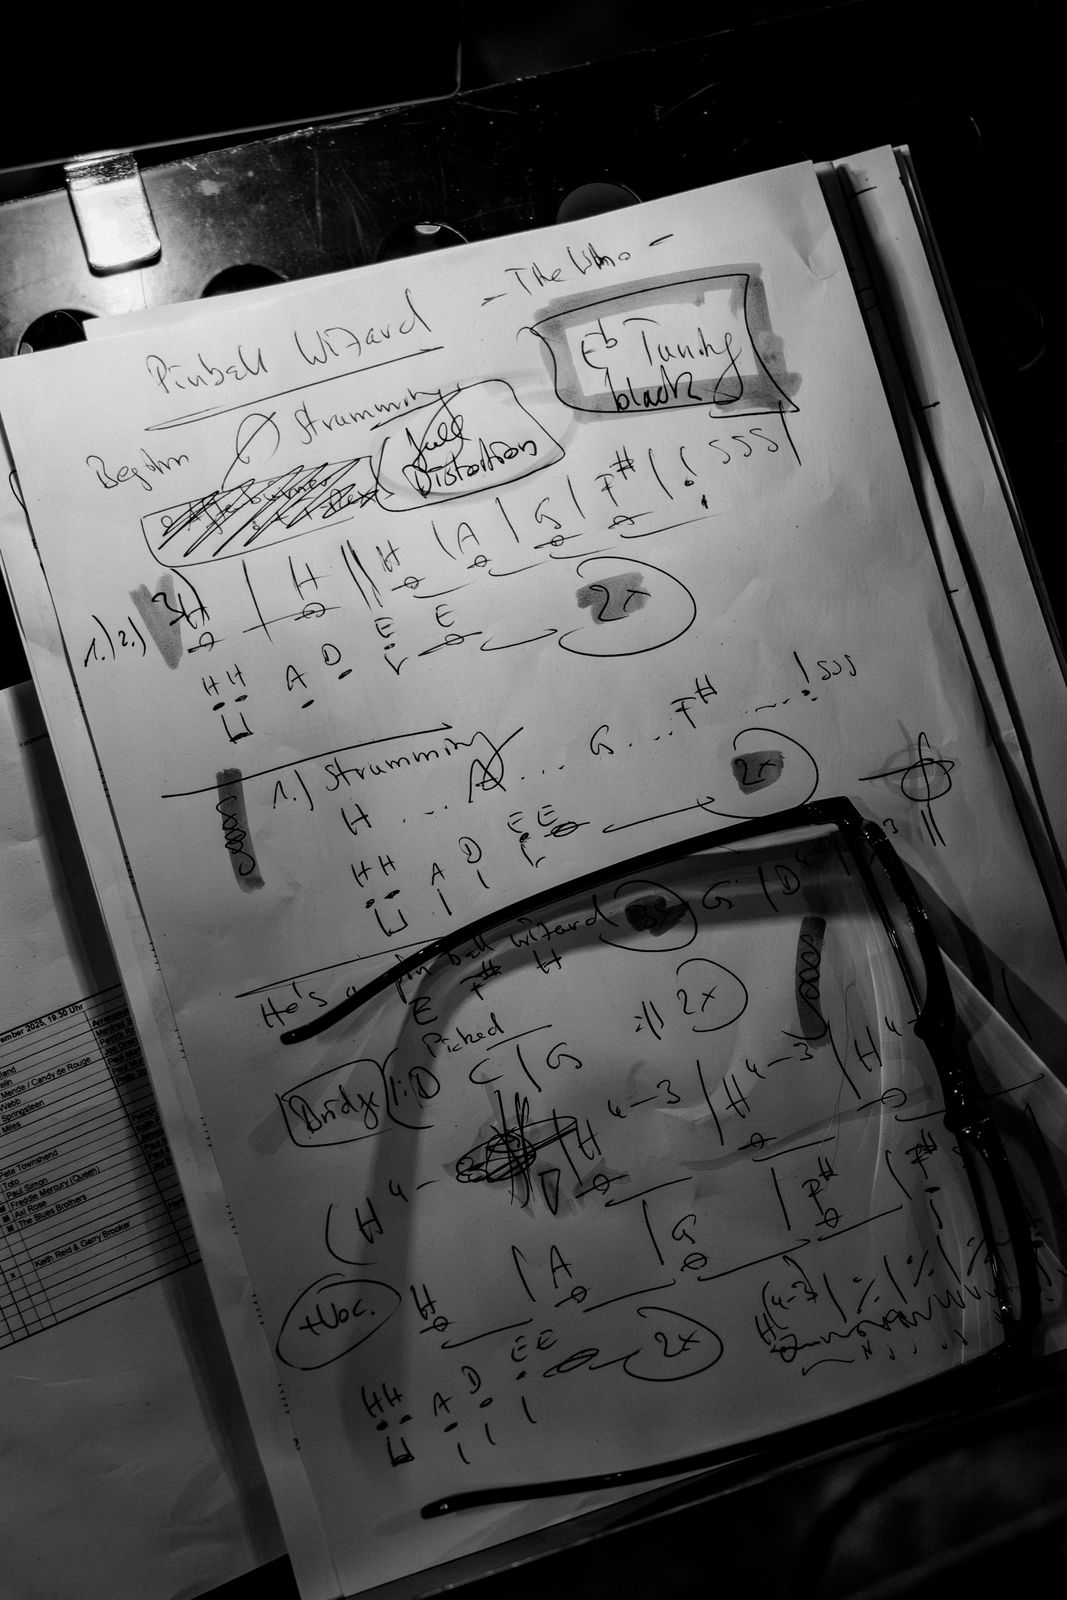 Pinball Wizard - The Who -
Eb Tuning
black
Begin Ø Strumming
full
Distortion
1.) 2.) H | H || H | A | G | F# | ! sss |
HH A D E E 2x
1.) Strumming
H ... A ... G ... F# ...! sss
HH A D EE 2x
He's a pinball wizard 3x G | D
E F# H
Picked
Bridge |: D C | G :|| 2x
(H 4- H 4-3 | H 4-3 | H 4-
+Voc. H | A | G | F# | F#
HH A D EE 2x H(4-3) | ٪ | ٪ | ٪
ember 2025, 19.30 Uhr
Mende / Candy de Rouge
Webb
Springsteen
Miles
Pete Townshend
Toto
Paul Simon
M Freddie Mercury (Queen)
M Axl Rose
M The Blues Brothers
x Keith Reid & Garry Brooker